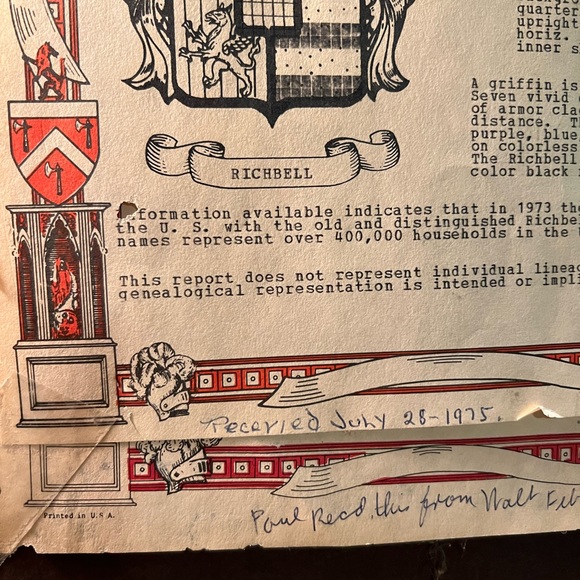 quarter
upright
horiz.
inner s
A griffin is
Seven vivid
of armor cla
distance. T
purple, blue
on colorless
The Richbell
color black
RICHBELL
formation available indicates that in 1973 the
the U. S. with the old and distinguished Richbe
names represent over 400,000 households in the
This report does not represent individual lineag
genealogical representation is intended or impli
Received July 28-1975.
Paul Recd. this from Walt Feb
Printed in U.S.A.